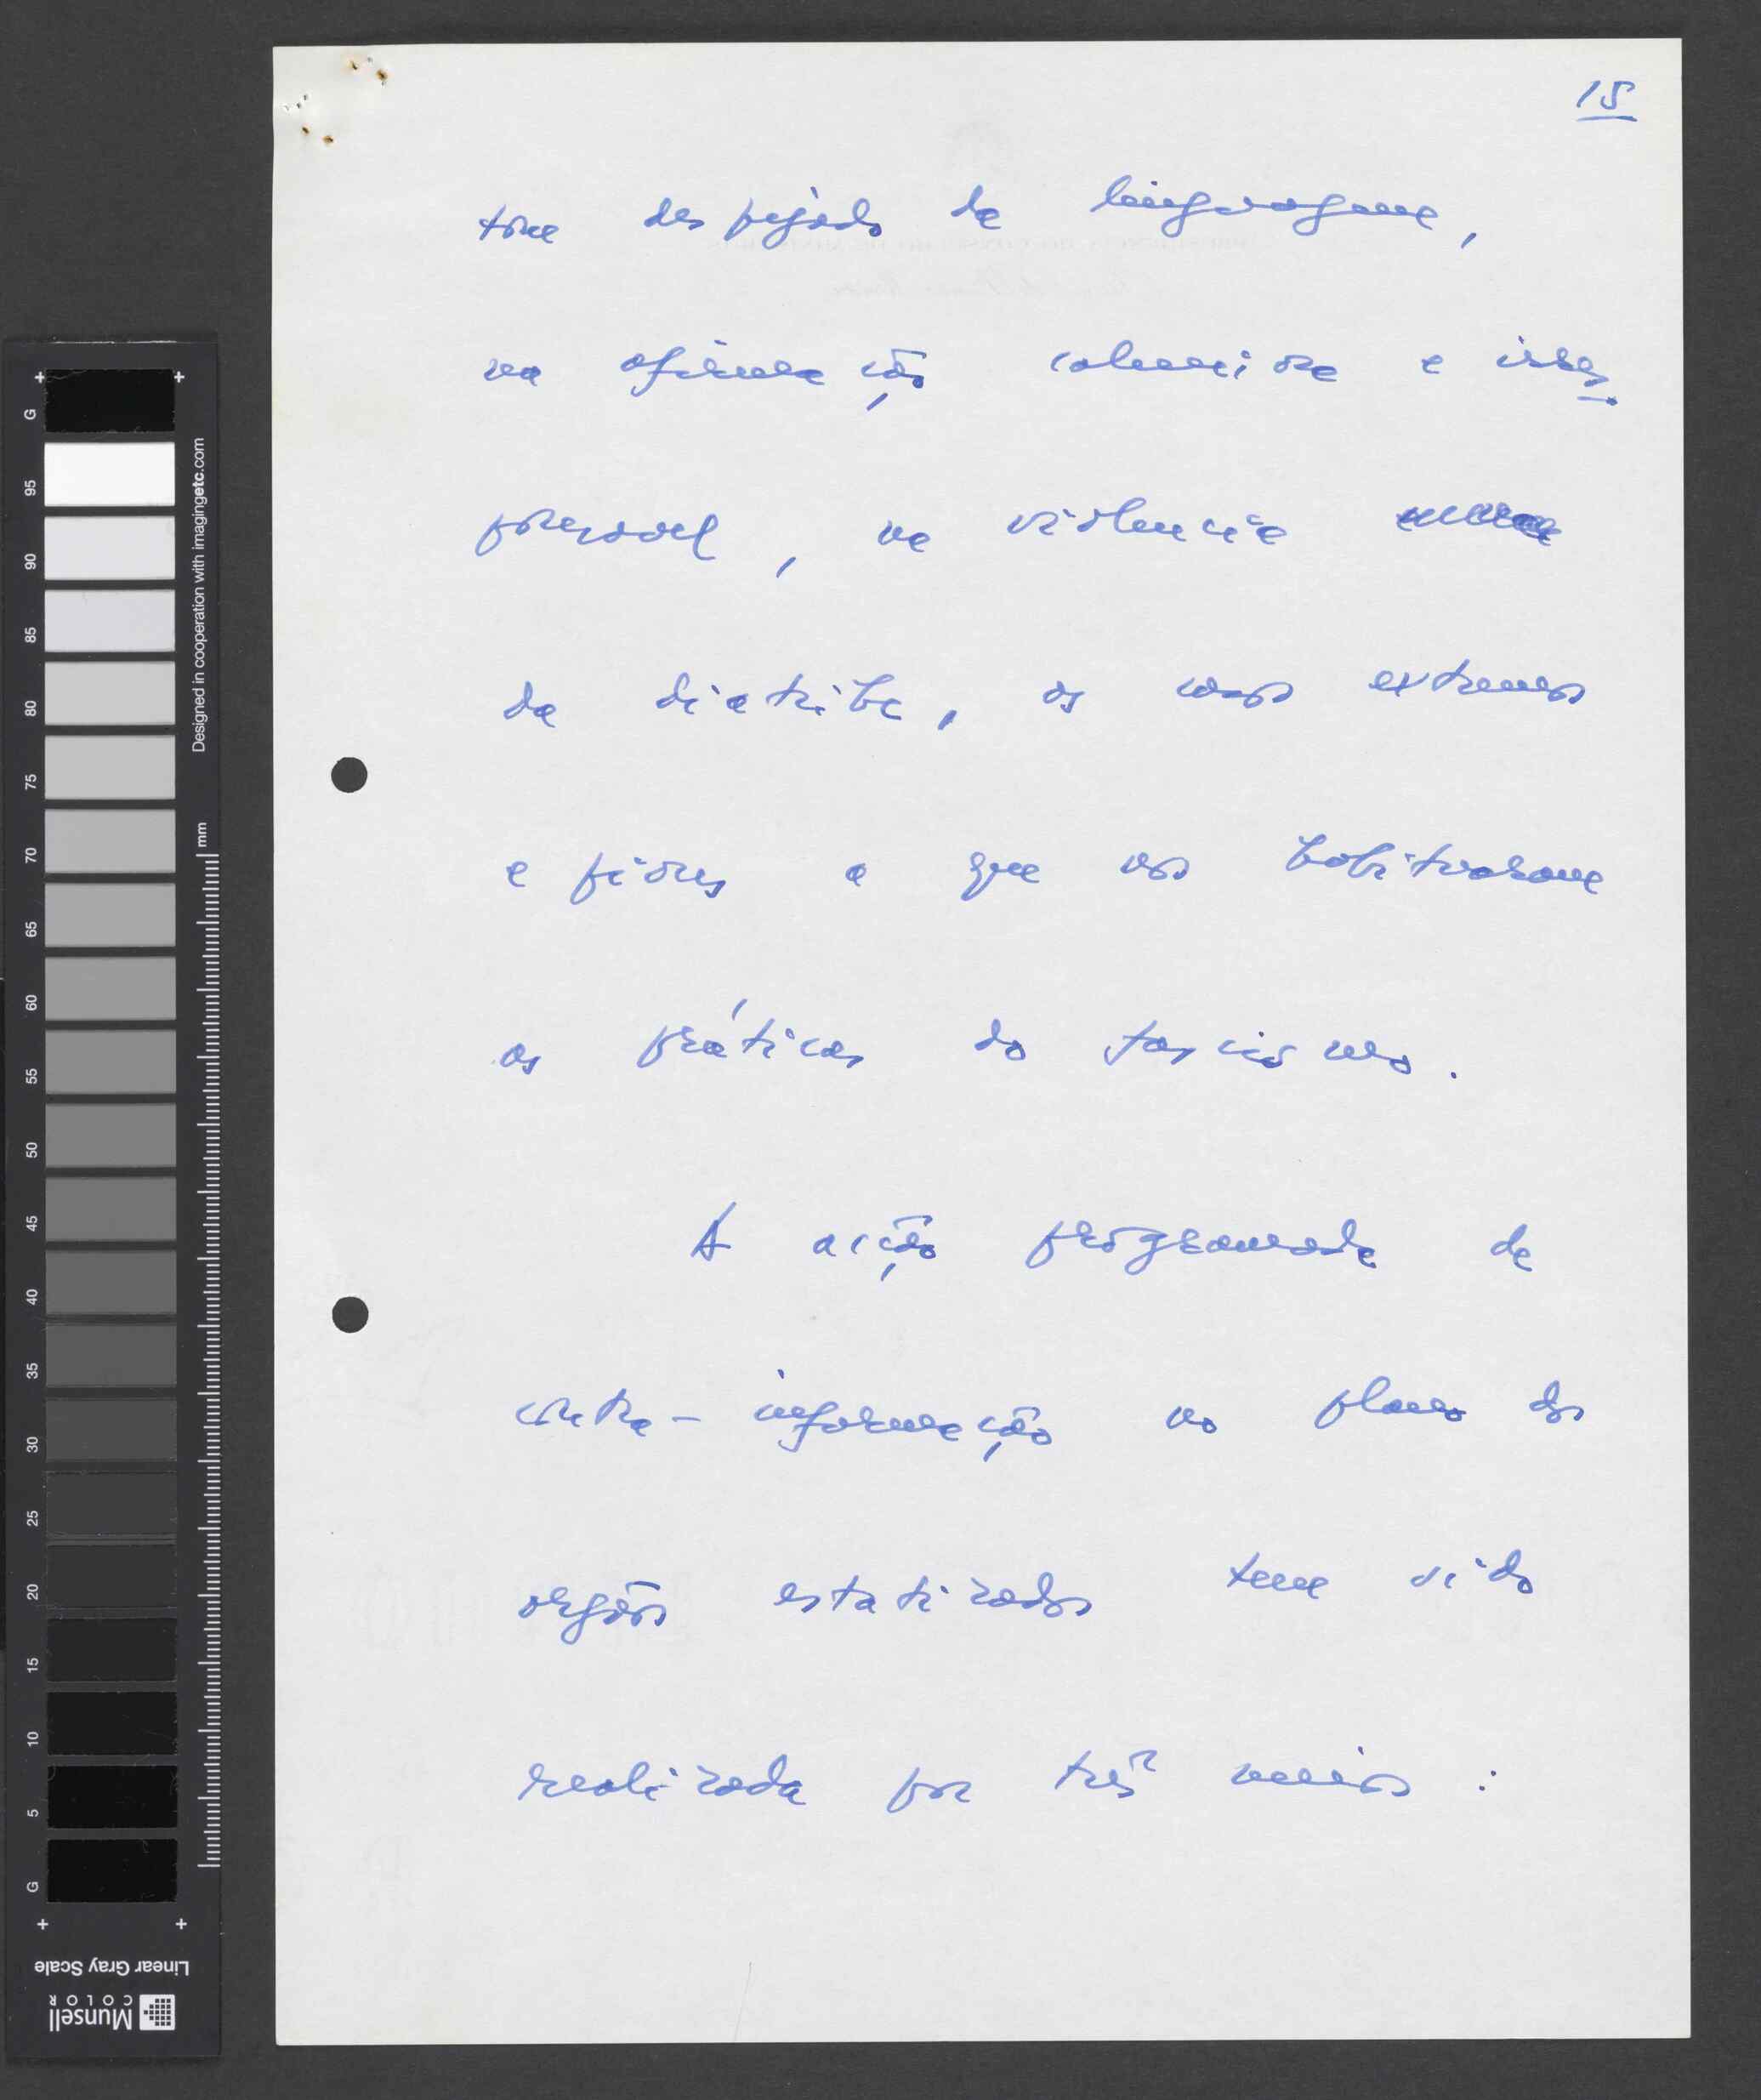 15
tom despejado da linguagem,
na afirmação caluniosa e irres
ponsavel, na violencia
da diatribe, os mais extremos
e piores a que nos habituaram
as práticas do fascismo.
A acção programada de
contra-informação no plano dos
orgãos estatizados tem sido
realizada por três meios:
G
95
90
85
80
75
70
65
60
55
50
45
40
35
30
25
20
15
10
5
G
Designed in cooperation with imagingetc.com
mm
Linear Gray Scale
Munsell
COLOR